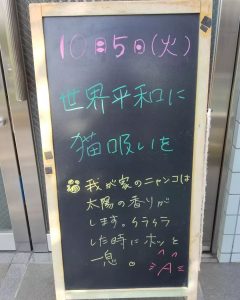 10月5日(火)
世界平和に
猫吸いを
我が家のニャンコは
太陽の香りが
します。イライラ
した時にホッと
一息。